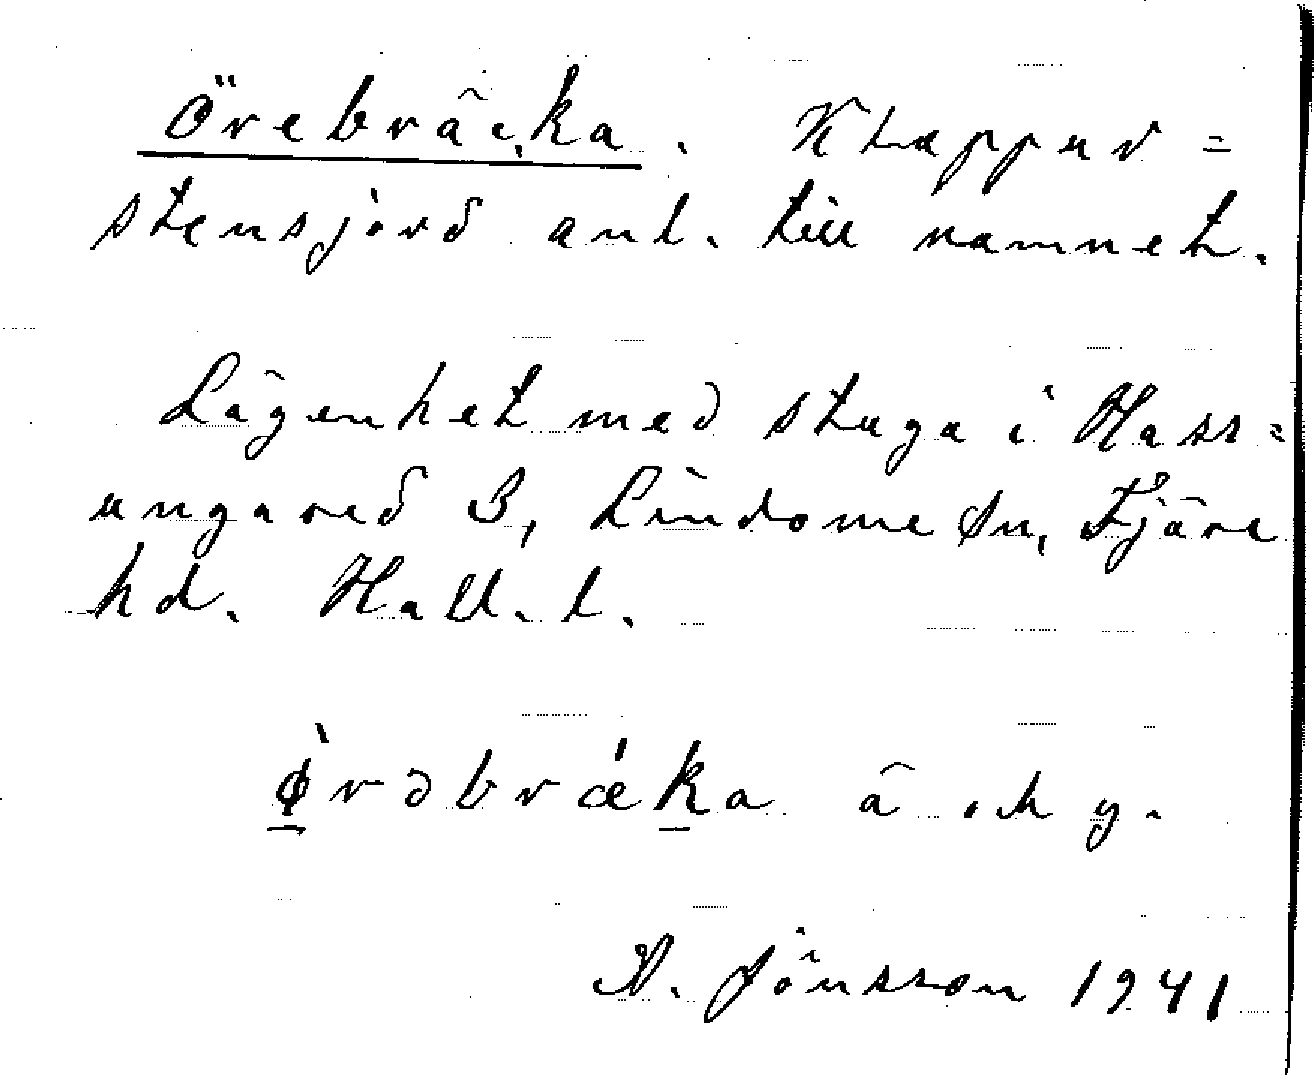 Örebräcka. Klappur=
stensjord anl. till namnet.
Lägenhet med stuga i Hass=
ungared 3, Lindome sn, Fjäre
hd. Hall. l.
ø̀rəbrǽka ä. och y.
A. Jönsson 1941